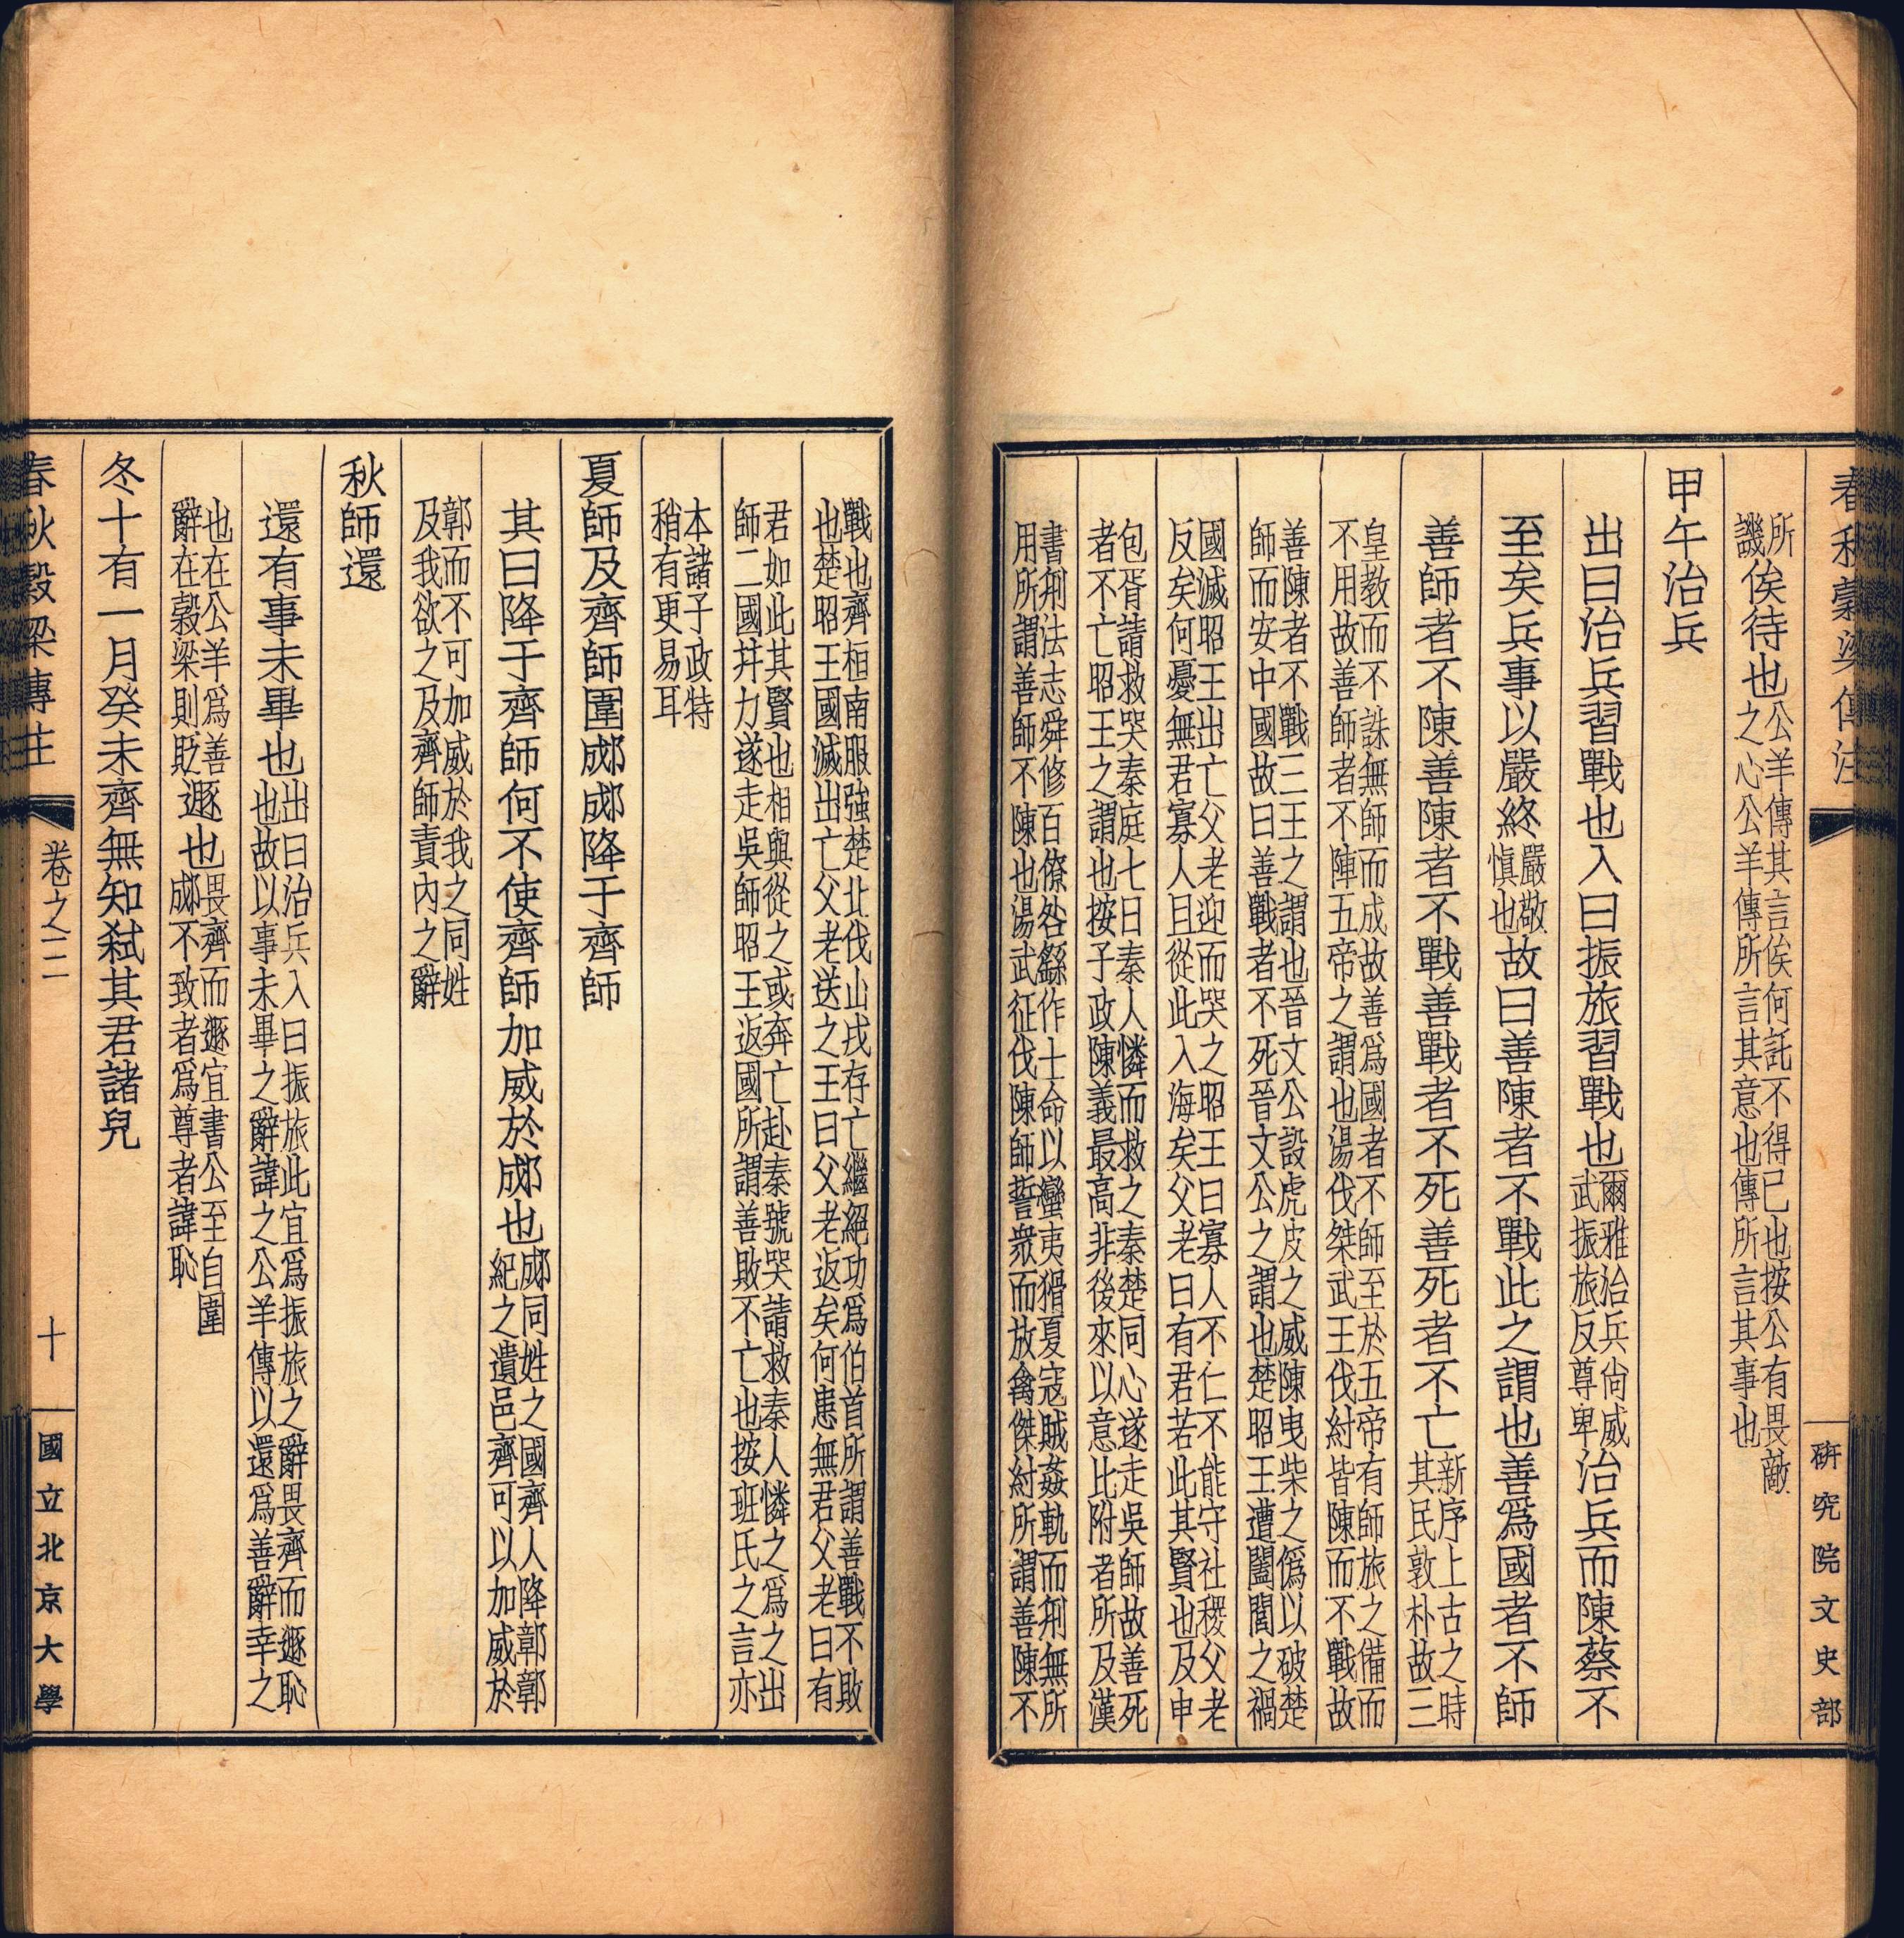 春秋穀梁傳注
研究院文史部
所
譏俟待也公羊傳其言俟何託不得已也按公有畏敵
之心公羊傳所言其意也傳所言其事也
甲午治兵
出曰治兵習戰也入曰振旅習戰也爾雅治兵尙威
武振旅反尊卑治兵而陳蔡不
至矣兵事以嚴終嚴敬
愼也故曰善陳者不戰此之謂也善爲國者不師
善師者不陳善陳者不戰善戰者不死善死者不亡新序上古之時
其民敦朴故三
皇教而不誅無師而成故善爲國者不師至於五帝有師旅之備而
不用故善師者不陣五帝之謂也湯伐桀武王伐紂皆陳而不戰故
善陳者不戰三王之謂也晉文公設虎皮之威陳曳柴之僞以破楚
師而安中國故曰善戰者不死晉文公之謂也楚昭王遭闔閭之禍
國滅昭王出亡父老迎而哭之昭王曰寡人不仁不能守社稷父老
反矣何憂無君寡人且從此入海矣父老曰有君若此其賢也及申
包胥請救哭秦庭七日秦人憐而救之秦楚同心遂走吳師故善死
者不亡昭王之謂也按子政陳義最高非後來以意比附者所及漢
書刑法志舜修百僚咎繇作士命以蠻夷猾夏寇賊姦軌而刑無所
用所謂善師不陳也湯武征伐陳師誓衆而放禽桀紂所謂善陳不
戰也齊桓南服強楚北伐山戎存亡繼絕功爲伯首所謂善戰不敗
也楚昭王國滅出亡父老送之王曰父老返矣何患無君父老曰有
君如此其賢也相與從之或奔亡赴秦號哭請救秦人憐之爲之出
師二國幷力遂走吳師昭王返國所謂善敗不亡也按班氏之言亦
本諸子政特
稍有更易耳
夏師及齊師圍郕郕降于齊師
其曰降于齊師何不使齊師加威於郕也郕同姓之國齊人降鄣鄣
紀之遺邑齊可以加威於
鄣而不可加威於我之同姓
及我欲之及齊師責內之辭
秋師還
還有事未畢也出曰治兵入曰振旅此宜爲振旅之辭畏齊而遯恥
也故以事未畢之辭諱之公羊傳以還爲善辭幸之
也在公羊爲善
辭在穀梁則貶遯也畏齊而遯宜書公至自圍
郕不致者爲尊者諱恥
冬十有一月癸未齊無知弒其君諸兒
春秋穀梁傳注
卷之三
十
國立北京大學